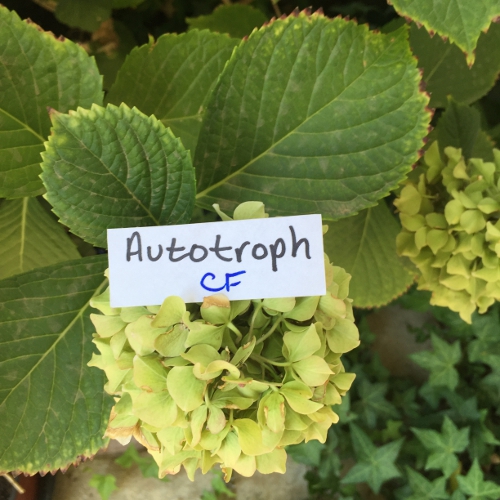 Autotroph
CF